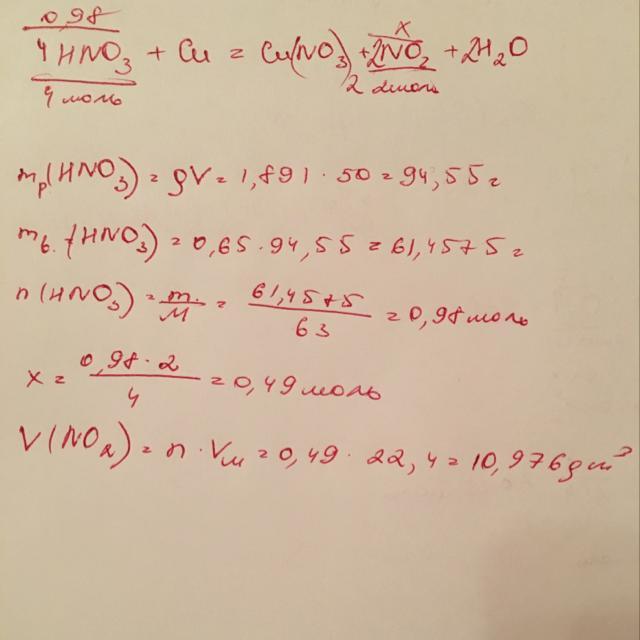 0,98 x
4HNO₃ + Cu = Cu(NO₃)₂ + 2NO₂ + 2H₂O
4 моль 2 моль
mр(HNO₃) = ρV = 1,891 · 50 = 94,55 г
mв. (HNO₃) = 0,65 · 94,55 = 61,4575 г
n(HNO₃) = m/M = 61,4575/63 = 0,98 моль
x = 0,98 · 2/4 = 0,49 моль
V(NO₂) = n · Vм = 0,49 · 22,4 = 10,976 дм³